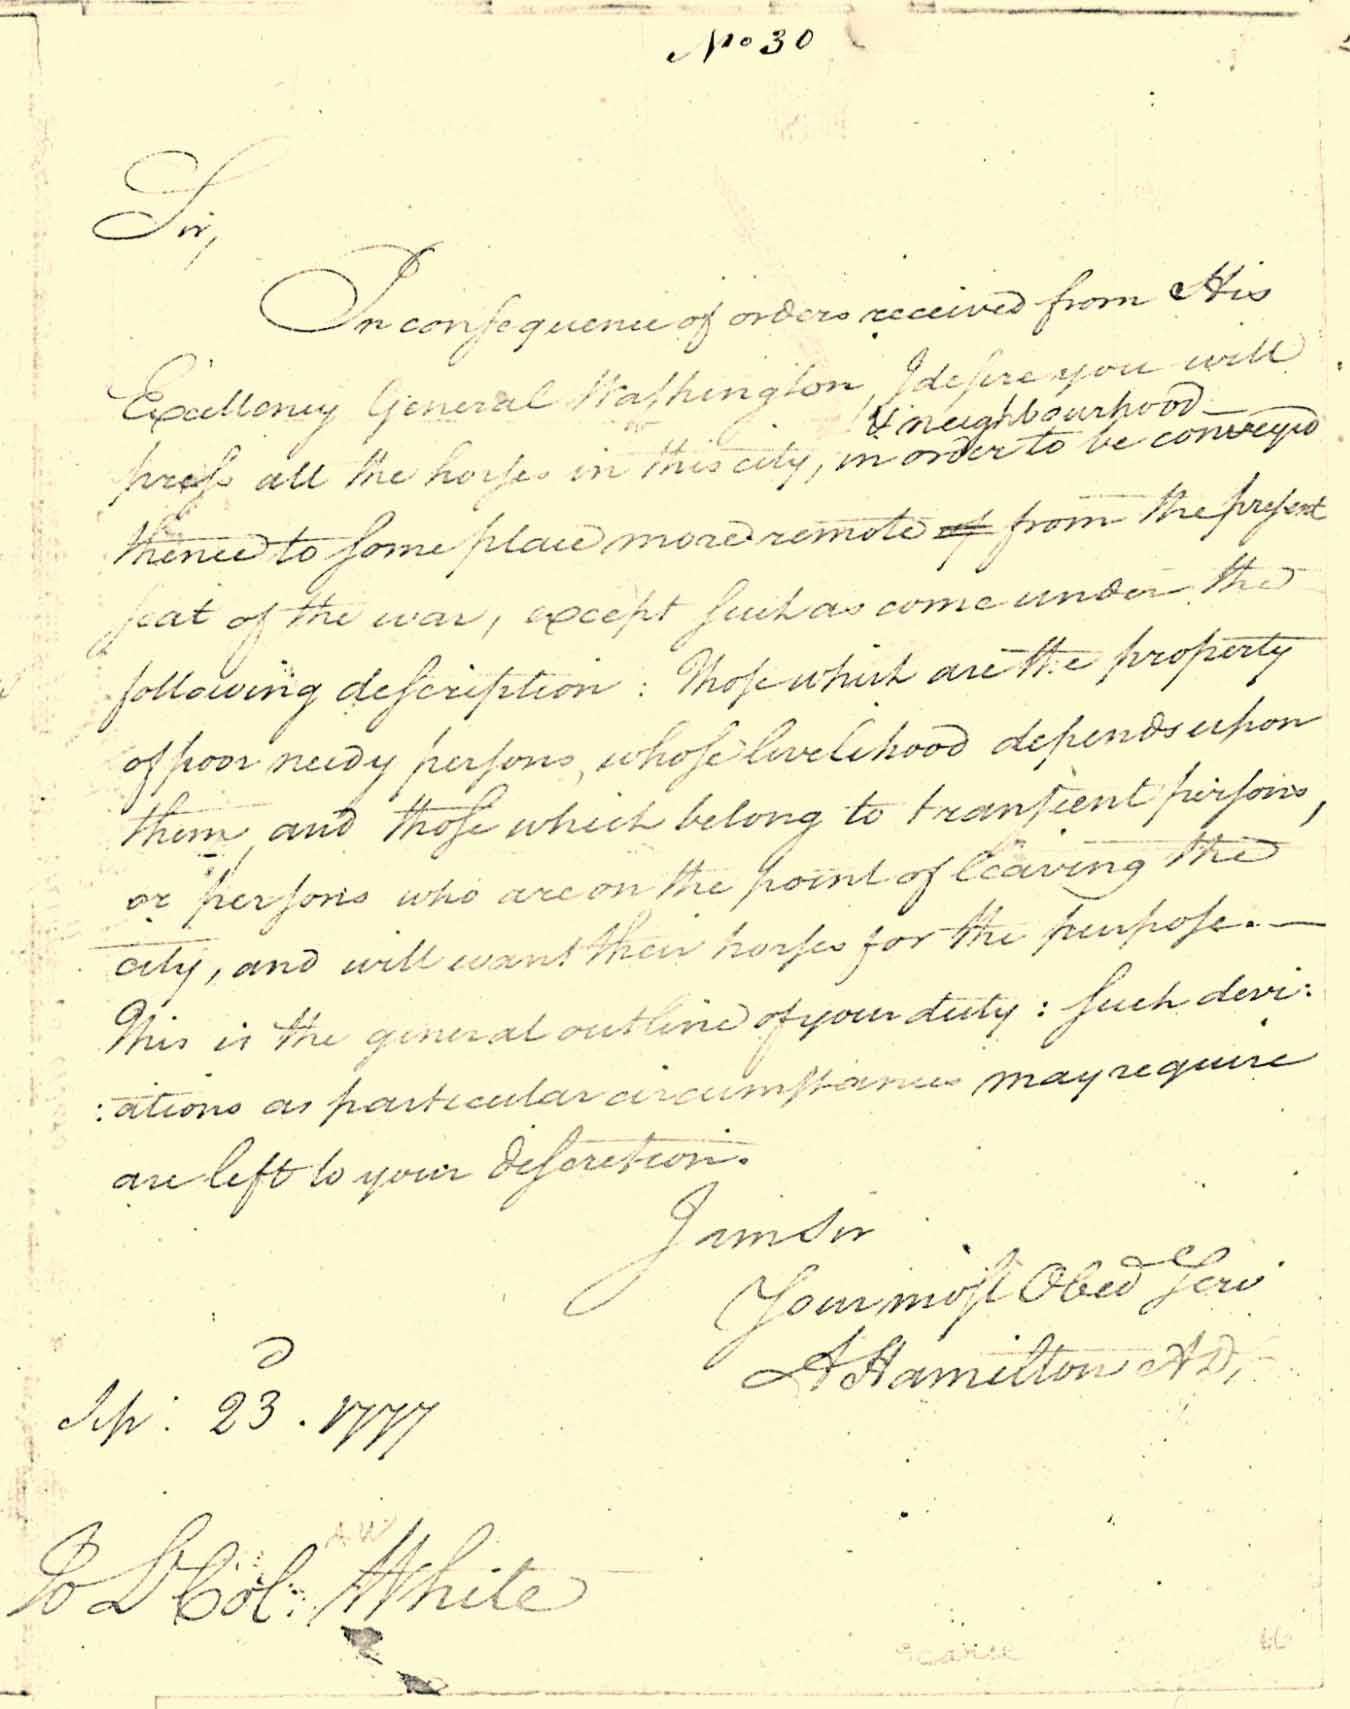 No 30
Sir,
In consequence of orders received from His
Excellency General Washington, I desire you will
& neighbourhood
press all the horses in this city, in order to be conveyed
thence to some place more remote of from the present
seat of the war, except such as come under the
following description: Those which are the property
of poor needy persons, whose livelihood depends upon
them, and those which belong to transient persons,
or persons who are on the point of leaving the
city, and will want their horses for the purpose.—
This is the general outline of your duty: Such devi:
:ations as particular circumstances may require
are left to your discretion.
I am Sir
Your most Obed Serv
A Hamilton ADC
Sep: 23d. 1777
AW
To Lt Col: White
scarce